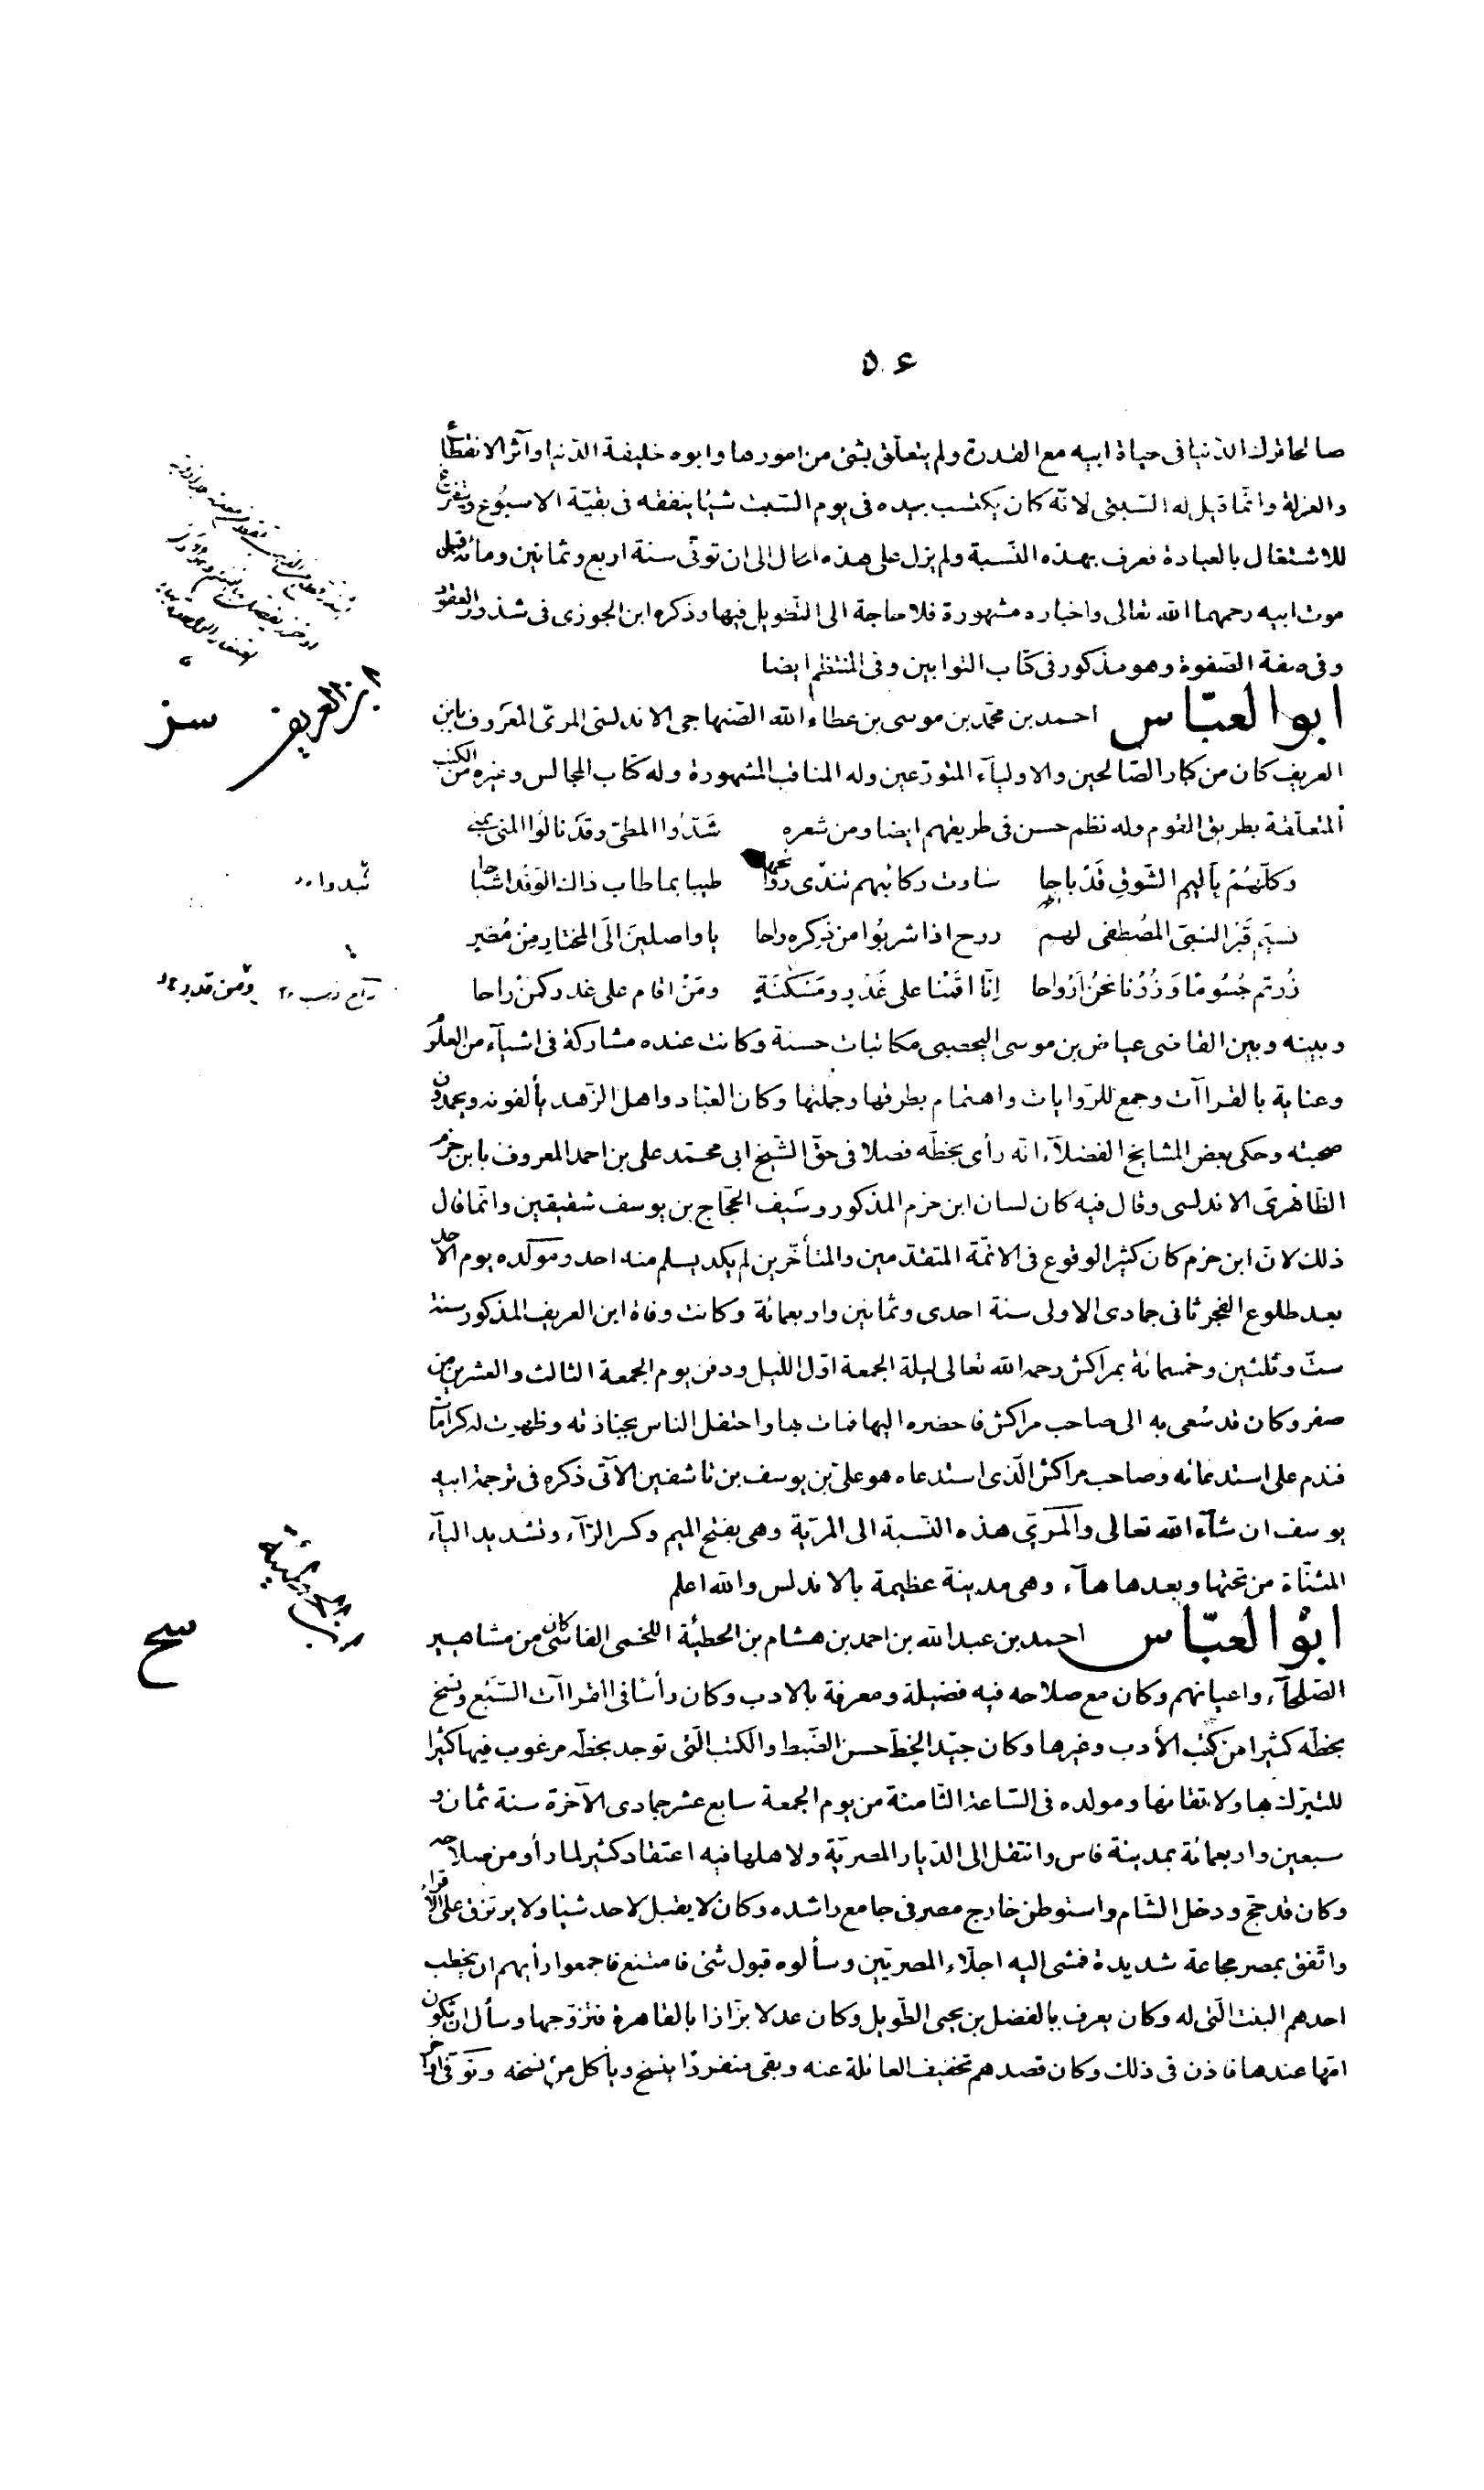 ٥٠٤
صالحا ترك الدّنيا فى حياة ابيه مع القدرة ولم يتعلّق بشئ من امورها وابوه خليفة الدّنيا وآثر الانقطاع
والعزلة وانّما قيل له السّبتى لانّه كان يكتسب بيده فى يوم السّبت شيئا ينفقه فى بقيّة الاسبُوع ويتفرّغ
للاشتغال بالعبادة فعرف بهذه النّسبة ولم يزل على هذه الحال الى ان توفّى سنة اربع وثمانين ومائة قبل
موت ابيه رحمهما الله تعالى واخباره مشهورة فلا حاجة الى التّطويل فيها وذكره ابن الجوزى فى شذور العقود
وفى صفة الصّفوة وهو مذكور فى كتاب التوابين وفى المنتظم ايضا
ابو العبّاس احمد بن محمّد بن موسى بن عطاء الله الصّنهاجى الاندلسى المرىّ المعَروف بابن
العريف كان من كبار الصّالحين والاوليآء المتورّعين وله المناقب المشهورة وله كتاب المجالس وغيره من الكتب
المتعلّقة بطريق القوم وله نظم حسن فى طريقهم ايضا ومن شعره شَدُّوا المطىّ وقدَ نالُوا المنى بمنى
وكلّهُمْ بأليمِ الشّوقِ قَدْ باحا سارت ركائبهم تندّى روائحها طيبا بما طاب ذاك الوَفْد اشباحا
نسيَم قَبْر النبىّ المُصْطفى لهم روح اذا شربُوا من ذِكره راحا يا واصلينَ الَى المختارِ مِنْ مُضَر
زُرتم جُسُومًا وَزُرْنا نحْنُ ارْواحا اِنّا اقَمْنا على عُذْرٍ ومَسَكَنَةٍ ومَنْ اقام على عذر كمنْ راحا
وبينه وبين القاضى عياض بن موسى اليحصبى مكاتبات حسنة وكانت عنده مشاركة فى اشيآء من العلُوم
وعناية بالقراآت وجمع للرّوايات واهتمام بطرقها وجملتها وكان العبّاد واهل الزّهد يألفونه ويحمدون
صحبته وحكى بعض المشايخ الفضلآء انّه رأى بخطّه فصلا فى حقّ الشّيخ ابى محمّد على بن احمد المعروف بابن حزم
الظّاهرىّ الاندلسى وقال فيه كان لسان ابن حزم المذكور وسَيف الحجّاج بن يوسف شقيقين وانّما قال
ذلك لانّ ابن حزم كان كثير الوقوع فى الائمّة المتقدّمين والمتأخّرين لم يكد يسلم منه احد ومَولده يوم الأحد
بعد طلوع الفجر ثانى جمادى الاولى سنة احدى وثمانين واربعمائة وكانت وفاة ابن العريف المذكور سنة
ستّ وثلثين وخمسمائة بمراكش رحمه الله تعالى ليلة الجمعة اوّل اللّيل ودفن يوم الجمعة الثالث والعشرين من
صفر وكان قد سُعى به الى صاحب مراكش فاحضره اليها فمات بها واحتفل الناس بجنازته وظهرت له كرامات
فندم على استدعائه وصاحب مراكش الّذى استدعاه هو علىّ بن يوسف بن تاشفين الآتى ذكره فى ترجمة ابيه
يوسف ان شآء الله تعالى والمَرىّ هذه النّسبة الى المريّة وهى بفتح الميم وكسر الرّآء وتشديد اليآء
المثنّاة من تحتها وبعدها هآء وهى مدينة عظيمة بالاندلس والله اعلم
ابُو العبّاس احمد بن عبد الله بن احمد بن هشام بن الحطيئة اللخمى الفاسىّ كان من مشاهير
الصّلحآء واعيانهم وكان مع صلاحه فيه فضيلة ومعرفة بالادب وكان رأسًا فى القراآت السّبَع ونسخ
بخطّه كثيرا من كتب الأدب وغيرها وكان جيّد الخطّ حسن الضّبط والكتب الّتى توجد بخطّه مرغوب فيها كثيرا
للتبّرك بها ولاتقانها ومولده فى السّاعة الثّامنة من يوم الجمعة سابع عشر جمادى الآخرة سنة ثمان و
سبعين واربعمائة بمدينة فاس وانتقل الى الدّيار المصريّة ولاهلها فيه اعتقاد كثير لما رأو من صلاحه
وكان قد حجّ ودخل الشّام واستوطن خارج مصر فى جامع راشده وكان لا يقبل لاحد شيئا ولا يرتزق على الاقراء
واتّفق بمصر مجاعة شديدة فمشى اليه اجلّاء المصريّين وسألوه قبول شئ فامتنع فاجمعوا رأيهم ان يخطب
احدهم البنت الّتى له وكان يعرف بالفضل بن يحيى الطّويل وكان عدلا بزّازا بالقاهرة فتزوّجها وسأل ان تكون
امّها عندها فاذن فى ذلك وكان قصدهم تخفيف العائلة عنه وبقى منفردًا ينسخ ويأكل من نسخه وتوفّى
ابن العريف
سز
شدوا
ومن قدر
ابن الحطيئة
سح